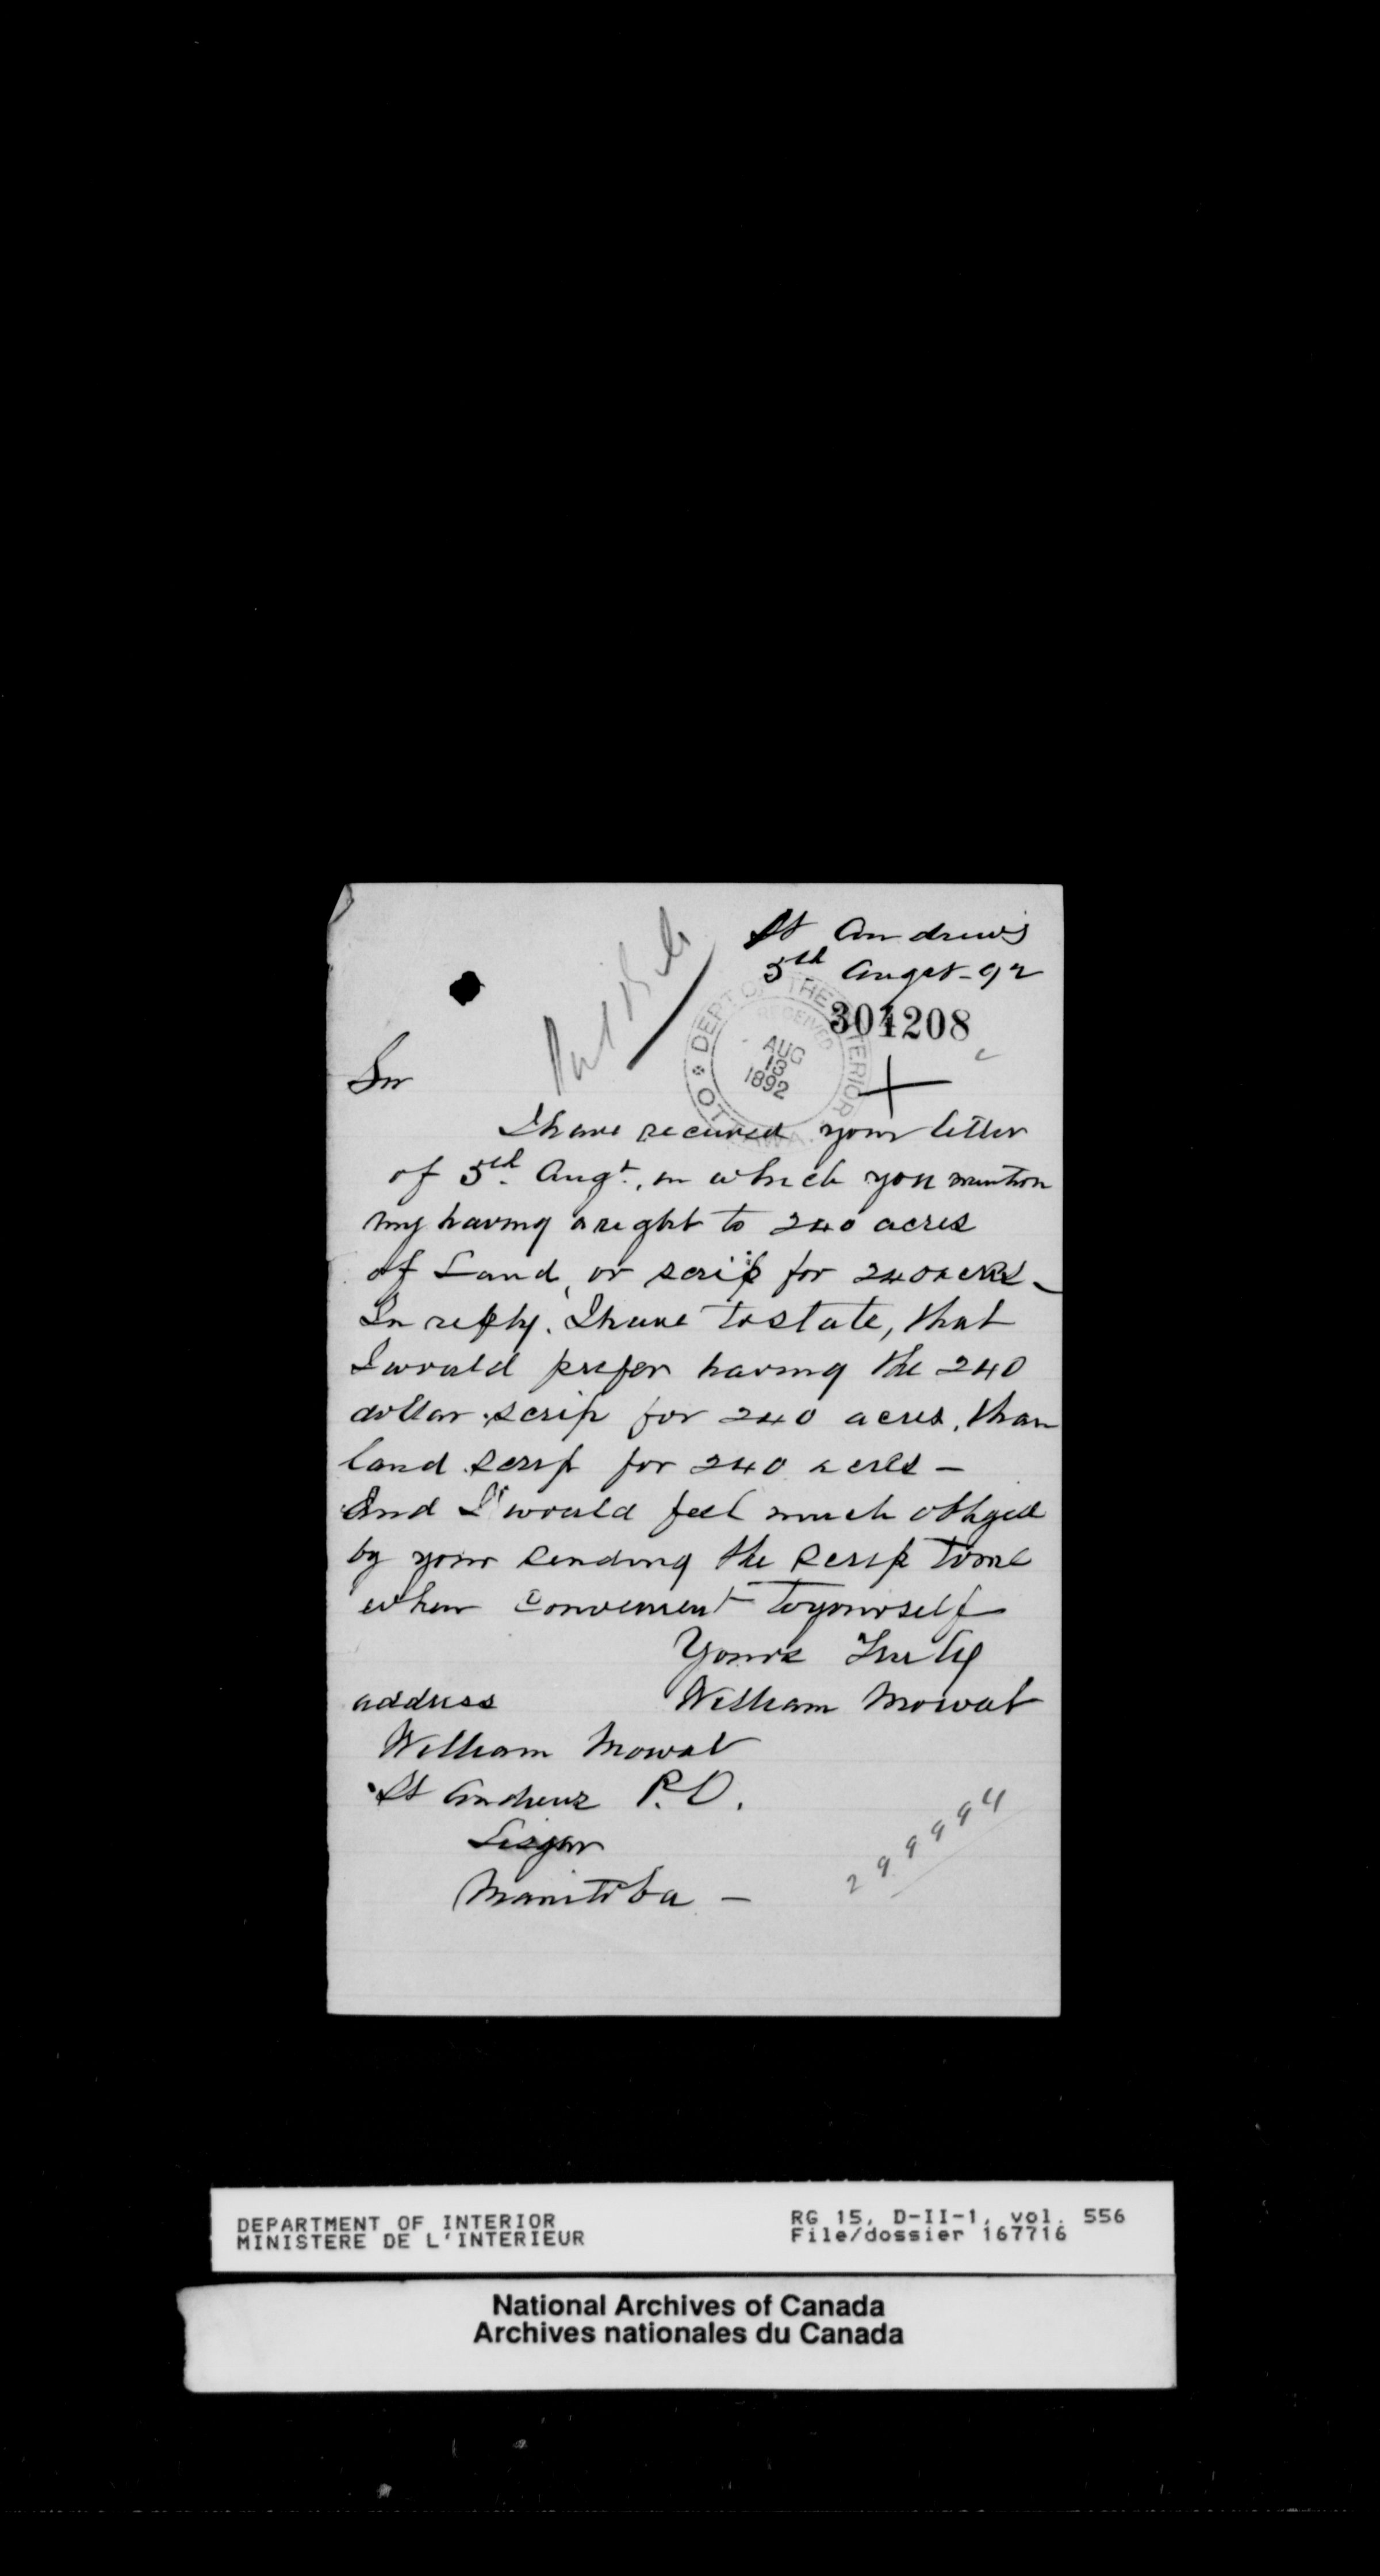 St Andrews
5th Augst - 92
304208
DEPT OF THE INTERIOR
RECEIVED
AUG
13
1892
OTTAWA
Sir
I have received your letter
of 3rd. Augt., in which you mention
my having a right to 240 acres
of Land, or scrip for 240 acres -
In reply. I have to state, that
I would prefer having the 240
dollar scrip for 240 acres, than
land scrip for 240 acres -
And I would feel much obliged
by your sending the scrip to me
when convenient to yourself
Yours Truly
address William Mowat
William Mowat
St Andrews P.O.
Lisgar
Manitoba -
299994
DEPARTMENT OF INTERIOR
MINISTERE DE L'INTERIEUR
RG 15, D-II-1, vol. 556
File/dossier 167716
National Archives of Canada
Archives nationales du Canada